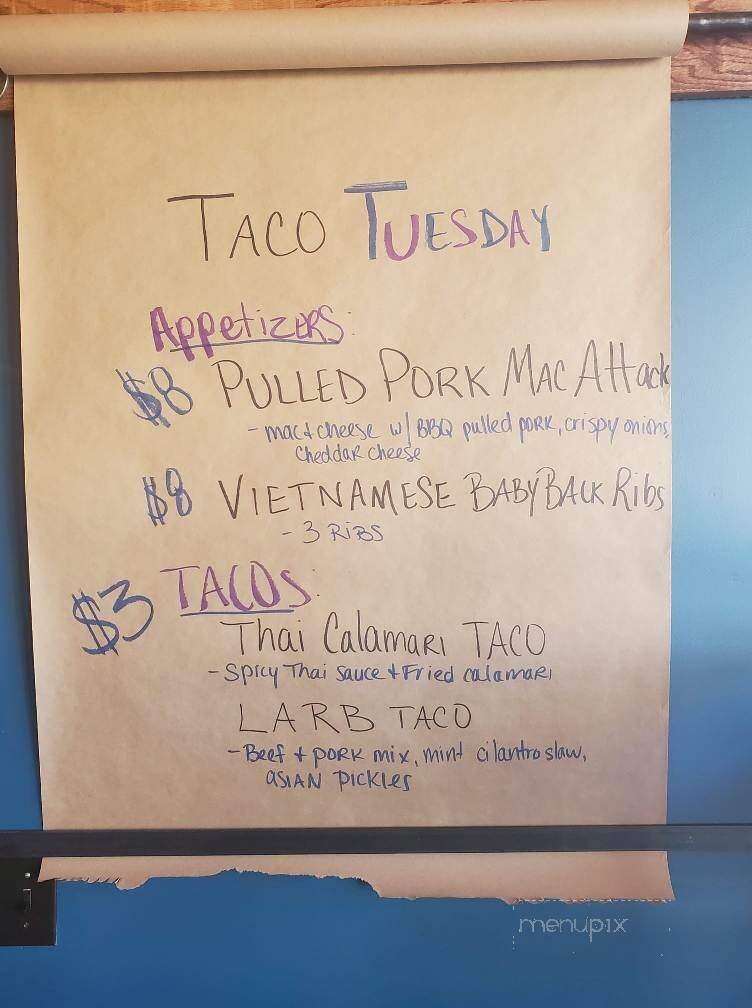 TACO TUESDAY
AppetizERS:
$8 PULLED PORK MAC Attack
- mac & cheese w/ BBQ pulled pork, crispy onions,
Cheddar cheese
$8 VIETNAMESE BABY BACK Ribs
- 3 RIBS
$3 TACOS:
Thai CalamaRi TACO
- Spicy Thai Sauce + Fried calamaRi
LARB TACO
- Beef + poRK mix, mint cilantro slaw,
ASIAN pickles
menupix